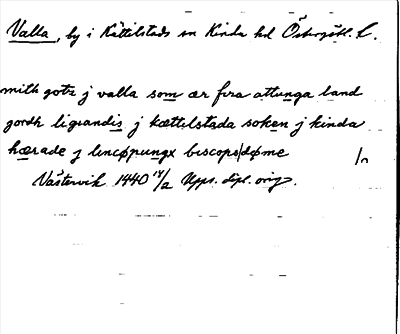 Valla, by i Kättilstads sn Kinda hd Östergötl. L.
mith gotz j valla som ær fira attunga land
gordh ligiandis j kættilstada soken j kinda
hærade j lincøpungx biscops|døme
Västervik 1440 14/2 Upps. dipl. orig.